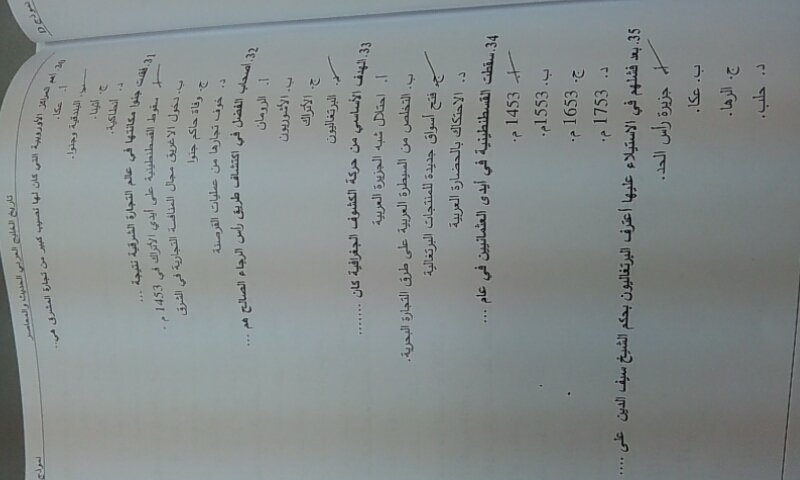 نموذج
تاريخ الخليج العربي الحديث والمعاصر
30. أهم المراكز الأوروبية التي كان لها نصيب كبير من تجارة المشرق هي..
أ. عكا.
ب. البندقية وجنوا.
ج. أثينا.
د. أنطاكية.
31. فقدت جنوا مكانتها في عالم التجارة الشرقية نتيجة ...
أ. سقوط القسطنطينية على أيدي الأتراك في 1453 م.
ب. دخول الاغريق مجال المنافسة التجارية في الشرق
ج. وفاة حاكم جنوا
د. خوف تجارها من عمليات القرصنة
32. أصحاب الفضل في اكتشاف طريق رأس الرجاء الصالح هم ...
أ. الرومان
ب. الآشوريون
ج. الأتراك
د. البرتغاليون
33. الهدف الأساسي من حركة الكشوف الجغرافية كان ........
أ. احتلال شبه الجزيرة العربية
ب. التخلص من السيطرة العربية على طرق التجارة البحرية.
ج. فتح أسواق جديدة للمنتجات البرتغالية
د. الاحتكاك بالحضارة العربية
34. سقطت القسطنطينية في أيدي العثمانيين في عام ...
أ. 1453 م.
ب. 1553م.
ج. 1653 م.
د. 1753 م.
35. بعد فشلهم في الاستيلاء عليها اعترف البرتغاليون بحكم الشيخ سيف الدين على .....
أ. جزيرة رأس الحد.
ب. عكا.
ج. الرها.
د. حلب.